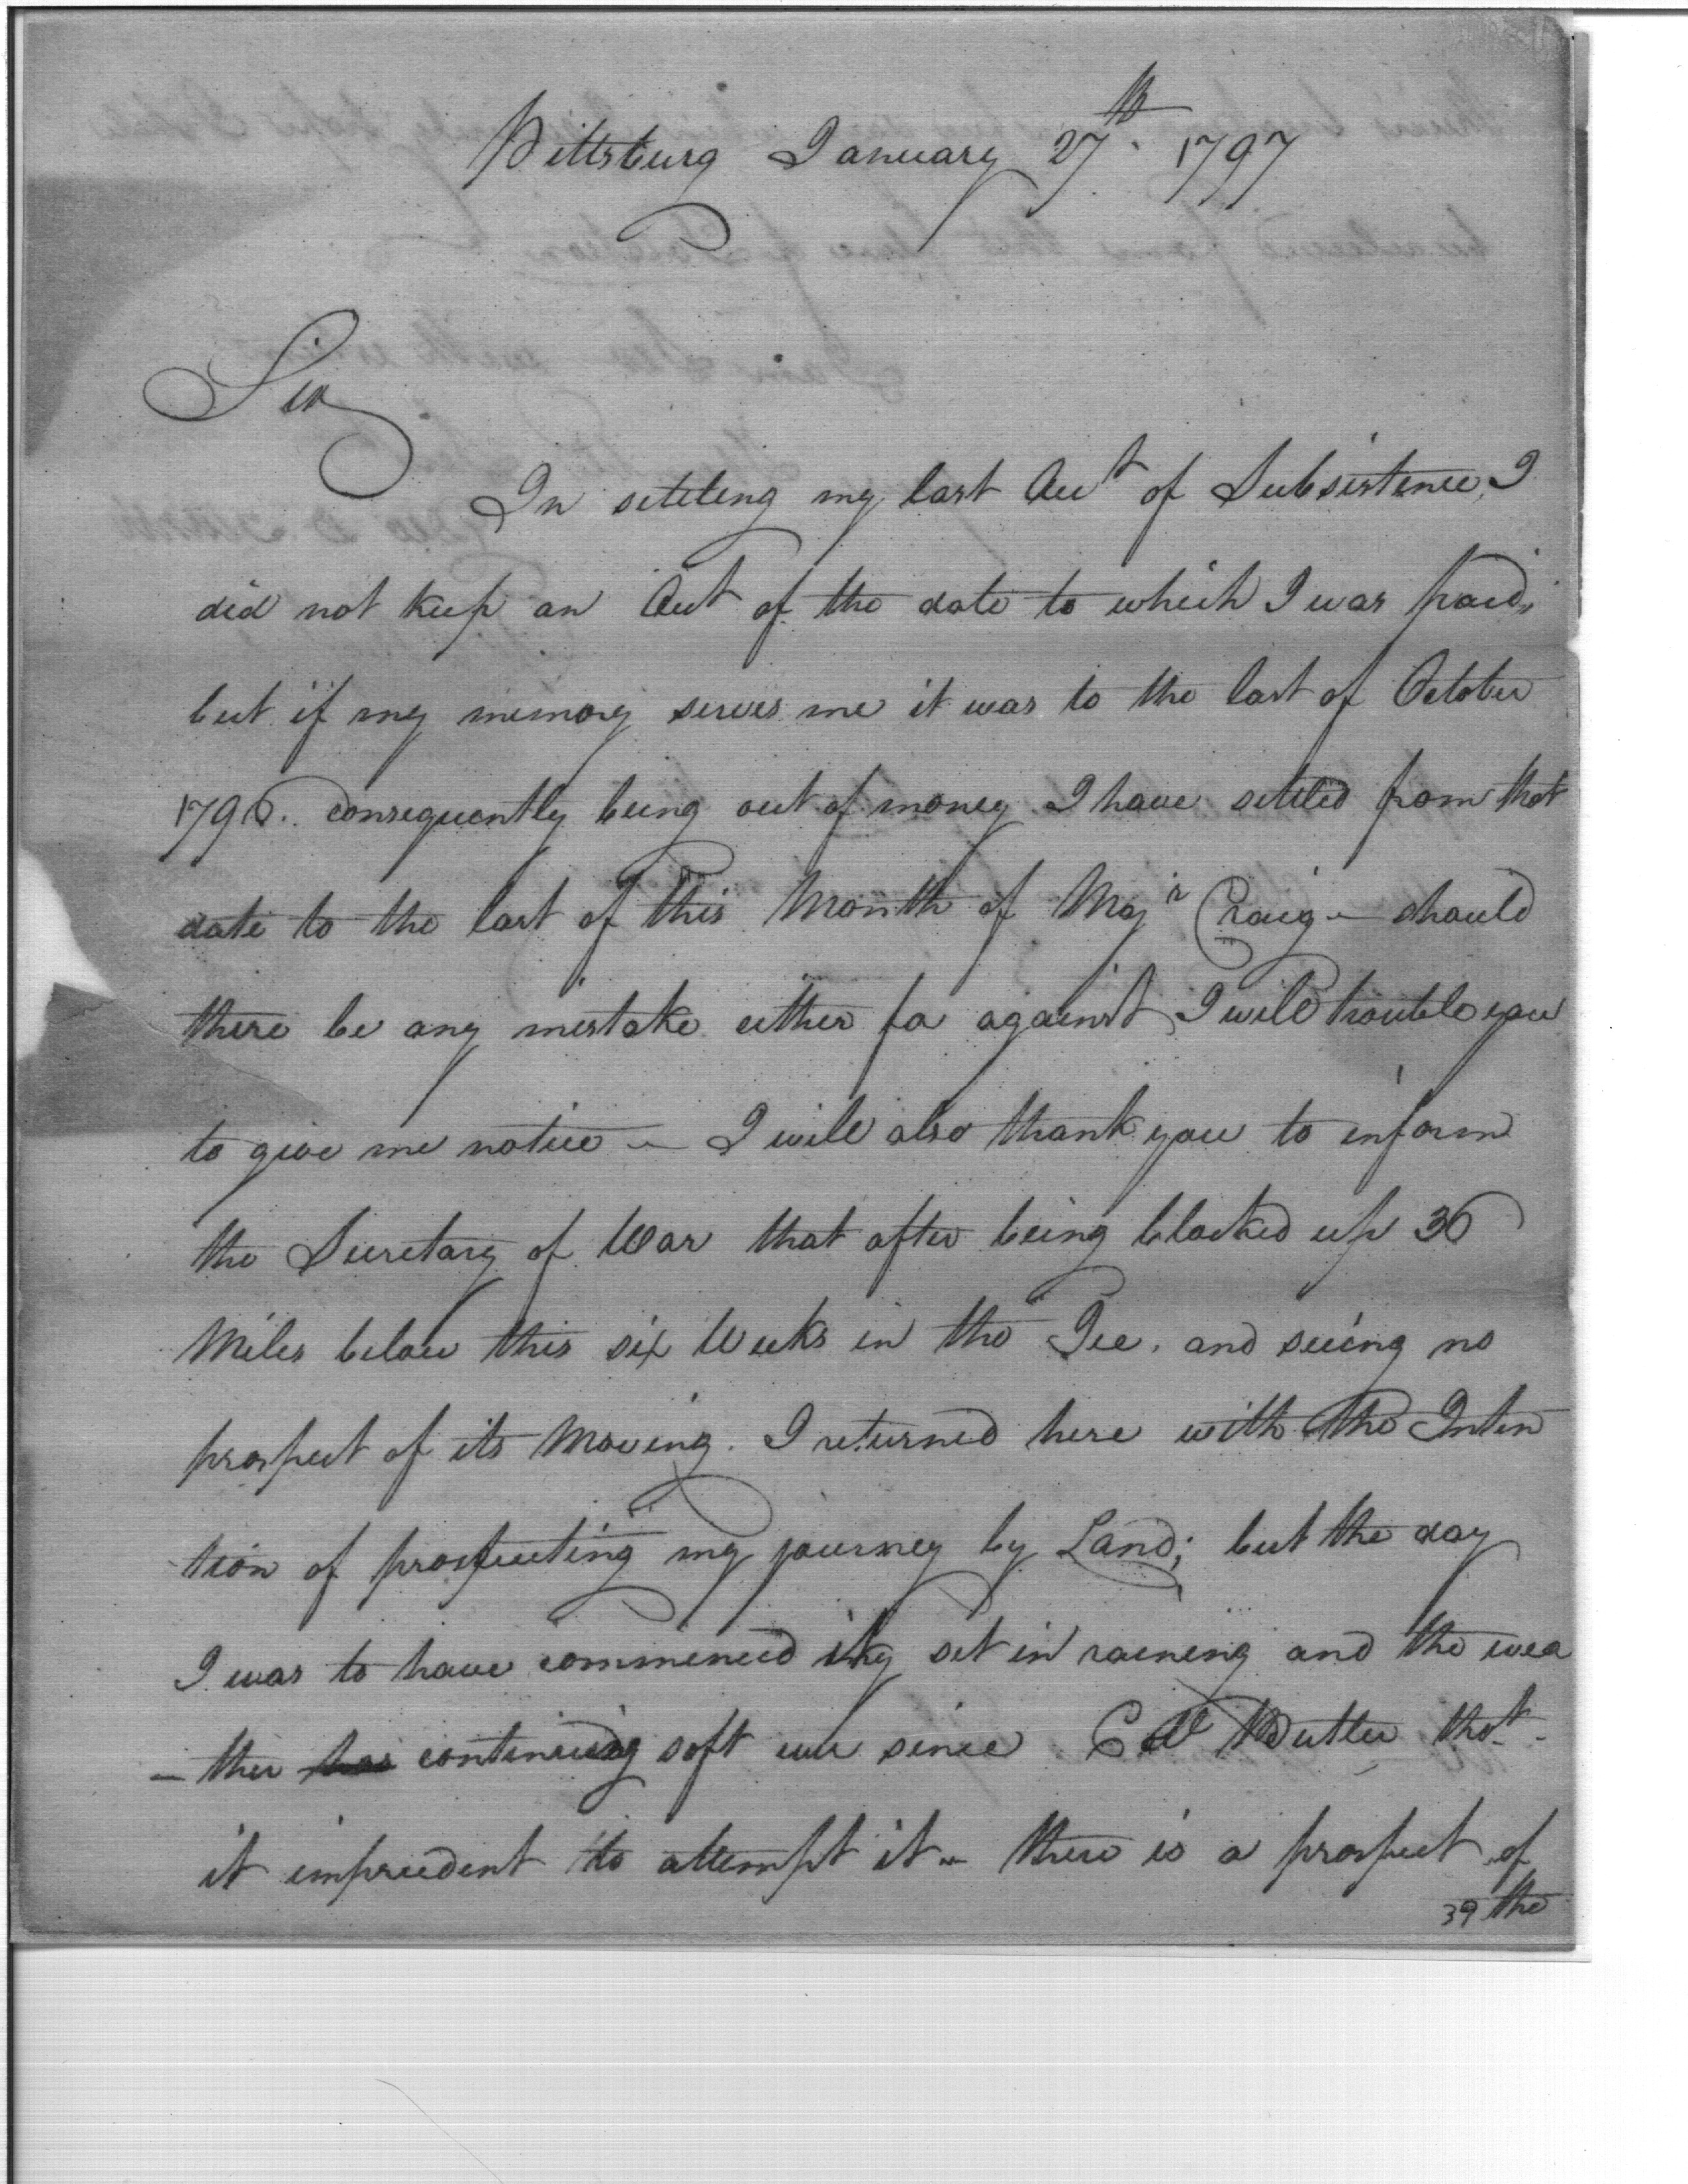 Pittsburg January 27th. 1797
Sir
In settling my last Acct of Subsistence, I
did not keep an Acct of the date to which I was paid,
but if my memory serves me it was to the last of October
1796. consequently being out of money I have settled from that
date to the last of this Month of Majr Craig — should
there be any mistake either for against I will trouble you
to give me notice — I will also thank you to inform
the Secretary of War that after being blocked up 36
Miles below this six Weeks in the Ice. and seeing no
prospect of its Moving. I returned here with the Inten
tion of prosecuting my journey by Land; but the day
I was to have commenced it set in raining and the wea
- ther has continuing soft ever since Col Butler thot.
it imprudent to attempt it - there is a prospect of
39 the